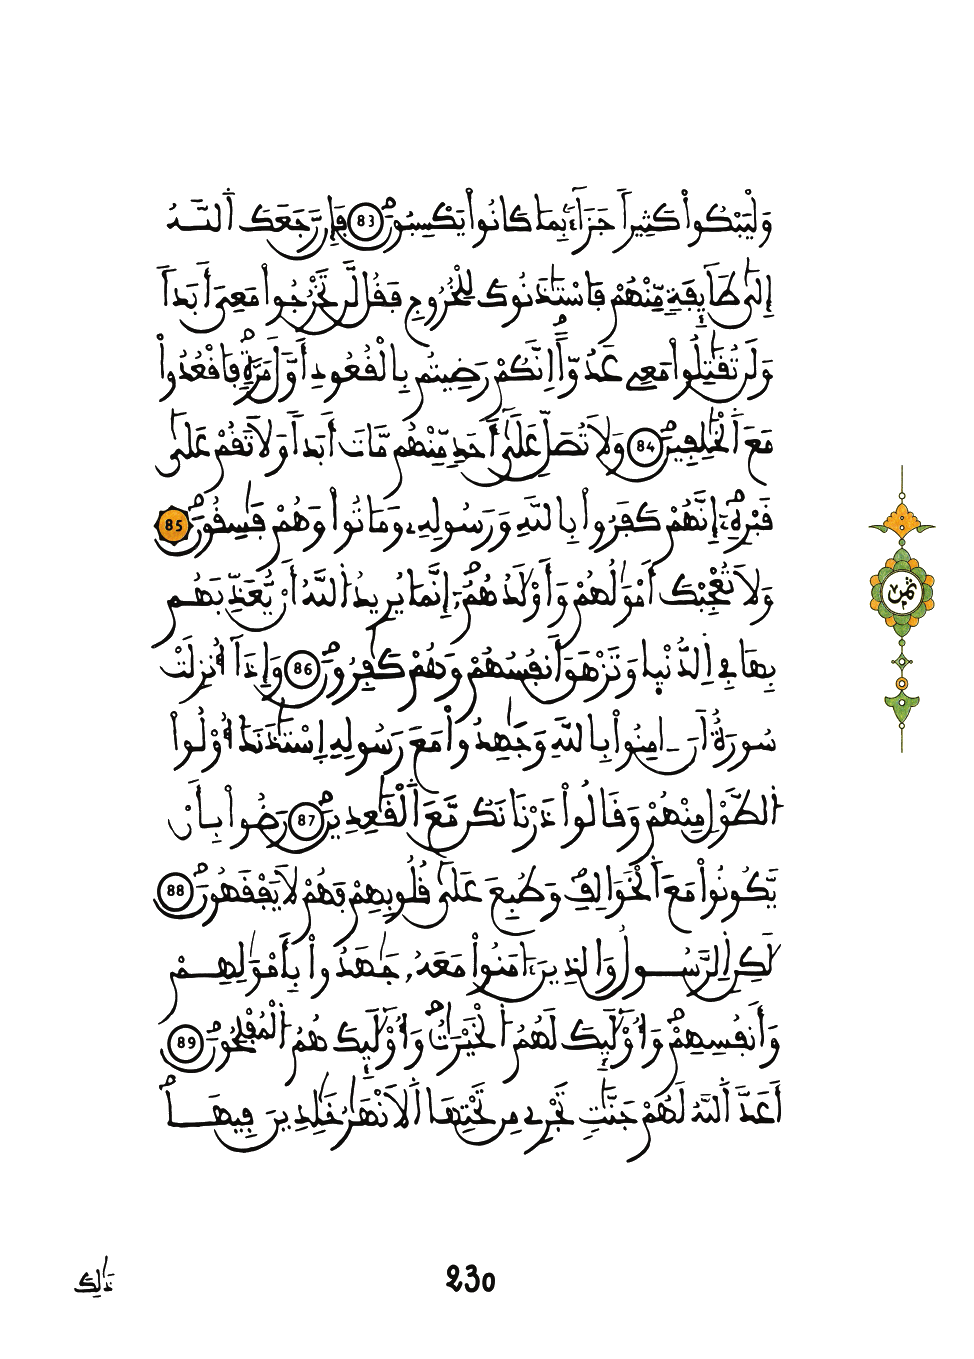 وَلْيَبْكُواْ كَثِيراً جَزَآءَۢ بِمَا كَانُواْ يَكْسِبُونَۖ 83 فَإِن رَّجَعَكَ اَ۬للَّهُ
إِلَىٰ طَآئِفَةٖ مِّنْهُمْ فَاسْتَـٰٔذَنُوكَ لِلْخُرُوجِ فَقُل لَّن تَخْرُجُواْ مَعِيَ أَبَداٗ
وَلَن تُقَٰتِلُواْ مَعِي عَدُوّاًۖ اِنَّكُمْ رَضِيتُم بِالْقُعُودِ أَوَّلَ مَرَّةٖۖ فَاقْعُدُواْ
مَعَ اَ۬لْخَٰلِفِينَۖ 84 وَلَا تُصَلِّ عَلَىٰٓ أَحَدٖ مِّنْهُم مَّاتَ أَبَداٗ وَلَا تَقُمْ عَلَىٰ
قَبْرِهِۦٓۖ إِنَّهُمْ كَفَرُواْ بِاللَّهِ وَرَسُولِهِۦ وَمَاتُواْ وَهُمْ فَٰسِقُونَۖ 85
وَلَا تُعْجِبْكَ أَمْوَٰلُهُمْ وَأَوْلَٰدُهُمُۥٓۖ إِنَّمَا يُرِيدُ اُ۬للَّهُ أَنْ يُّعَذِّبَهُم
بِهَا فِي اِ۬لدُّنْي۪ا وَتَزْهَقَ أَنفُسُهُمْ وَهُمْ كَٰفِرُونَۖ 86 وَإِذَآ أُنزِلَتْ
سُورَةٌ اَنَ اٰمِنُواْ بِاللَّهِ وَجَٰهِدُواْ مَعَ رَسُولِهِ اِ۪سْتَـٰٔذَنَكَ أُوْلُواْ
اُ۬لطَّوْلِ مِنْهُمْ وَقَالُواْ ذَرْنَا نَكُن مَّعَ اَ۬لْقَٰعِدِينَۖ 87 رَضُواْ بِأَنْ
يَّكُونُواْ مَعَ اَ۬لْخَوَالِفِۖ وَطُبِعَ عَلَىٰ قُلُوبِهِمْ فَهُمْ لَا يَفْقَهُونَۖ 88
لَٰكِنِ اِ۬لرَّسُولُ وَالذِينَ ءَامَنُواْ مَعَهُۥ جَٰهَدُواْ بِأَمْوَٰلِهِمْ
وَأَنفُسِهِمْۖ وَأُوْلَٰٓئِكَ لَهُمُ اُ۬لْخَيْرَٰتُۖ وَأُوْلَٰٓئِكَ هُمُ اُ۬لْمُفْلِحُونَۖ 89
أَعَدَّ اَ۬للَّهُ لَهُمْ جَنَّٰتٖ تَجْرِي مِن تَحْتِهَا اَ۬لَانْهَٰرُ خَٰلِدِينَ فِيهَاۖ
ثمن
230
ذَٰلِكَ